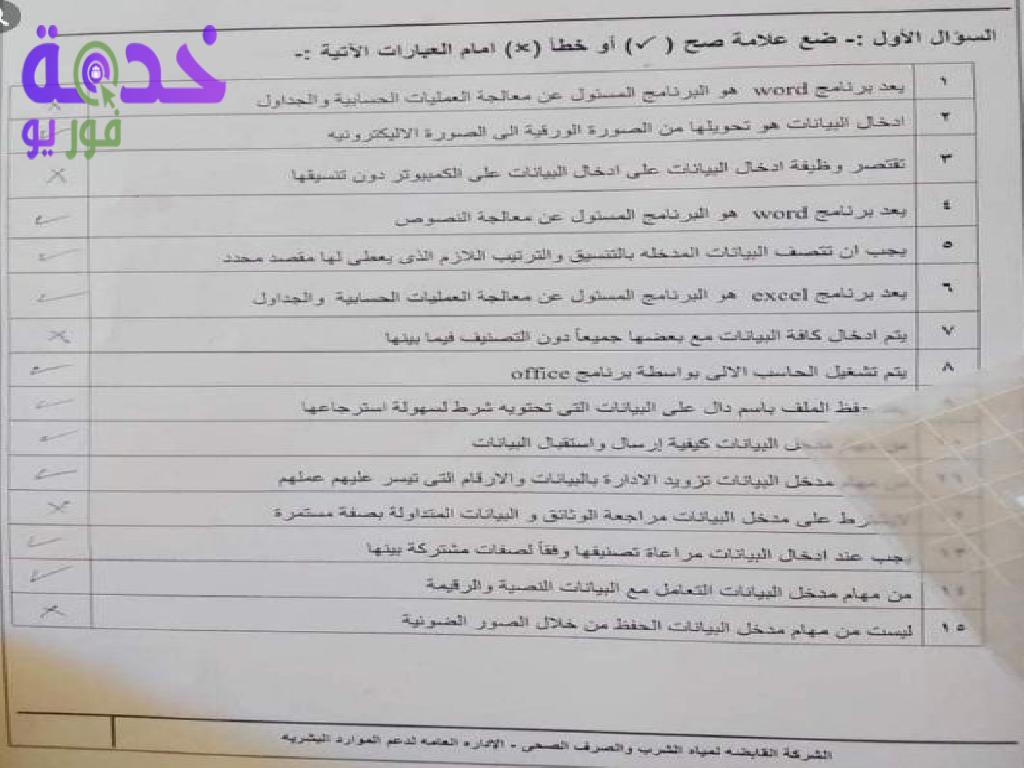 خدمة
فوريو
السؤال الأول :- ضع علامة صح (✓) أو خطأ (×) امام العبارات الآتية :-
١ يعد برنامج word هو البرنامج المسئول عن معالجة العمليات الحسابية والجداول ×
٢ ادخال البيانات هو تحويلها من الصورة الورقية الى الصورة الاليكترونيه
٣ تقتصر وظيفة ادخال البيانات على ادخال البيانات على الكمبيوتر دون تنسيقها ×
٤ يعد برنامج word هو البرنامج المسئول عن معالجة النصوص ✓
٥ يجب ان تتصف البيانات المدخله بالتنسيق والترتيب اللازم الذى يعطى لها مقصد محدد ✓
٦ يعد برنامج excel هو البرنامج المسئول عن معالجة العمليات الحسابية والجداول ✓
٧ يتم ادخال كافة البيانات مع بعضها جميعاً دون التصنيف فيما بينها ×
٨ يتم تشغيل الحاسب الالى بواسطة برنامج office ✓
الملف باسم دال على البيانات التى تحتويه شرط لسهولة استرجاعها ✓
البيانات كيفية إرسال واستقبال البيانات ✓
مهام مدخل البيانات تزويد الادارة بالبيانات والارقام التى تيسر عليهم عملهم ✓
على مدخل البيانات مراجعة الوثائق و البيانات المتداولة بصفة مستمرة ×
١٣ يجب عند ادخال البيانات مراعاة تصنيفها وفقاً لصفات مشتركة بينها ✓
١٤ من مهام مدخل البيانات التعامل مع البيانات النصية والرقيمة ✓
١٥ ليست من مهام مدخل البيانات الحفظ من خلال الصور الضوئية ×
الشركة القابضه لمياه الشرب والصرف الصحى - الاداره العامه لدعم الموارد البشريه